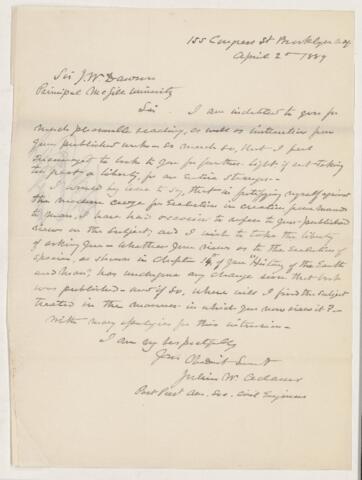 155 Congress St Brooklyn N.Y.
April 2d 1889
Sir J. W Dawson
Principal McGill University
Sir I am indebted to you for
much pleasurable reading, as well as instruction from
your published works - so much so, that I feel
encouraged to look to you for further light if not taking
too great a liberty, for an entire stranger -
I should say, that in fortifying myself against
the modern craze for Evolution in creation from monad
to man, I have had occasion to refer to your published
views on the subject, and I wish to take the liberty
of asking you - whether your views as to the Evolution of
species, as shown in Chapter 14th of your "History of the Earth
and Man", has undergone any change since that book
was published - and if so, where will I find the subject
treated in the manner in which you now view it? -
With many apologies for this intrusion -
I am very respectfully
Your Obedient Servt
Julius W. Adams
Past Prest Am. Soc. Civil Engineers